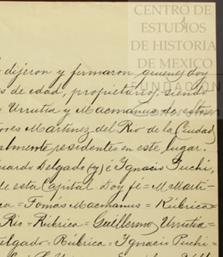 CENTRO DE
ESTUDIOS
DE HISTORIA
DE MÉXICO
FUNDACIÓN
dijeron y firmaron, quienes doy
s de edad, propietarios, siendo
Urrutia y Macmanus de este
ores Martínez del Rio de la Ciudad
almente residentes en este lugar.
cardo Delgado (y) é Ignacio Puchi,
de esta Capital Doy fé = M. Marti
= Tomás Macmanus = Rúbrica
Rio = Rúbrica = Guillermo Urrutia
elgado = Rúbrica = Ignacio Puchi =